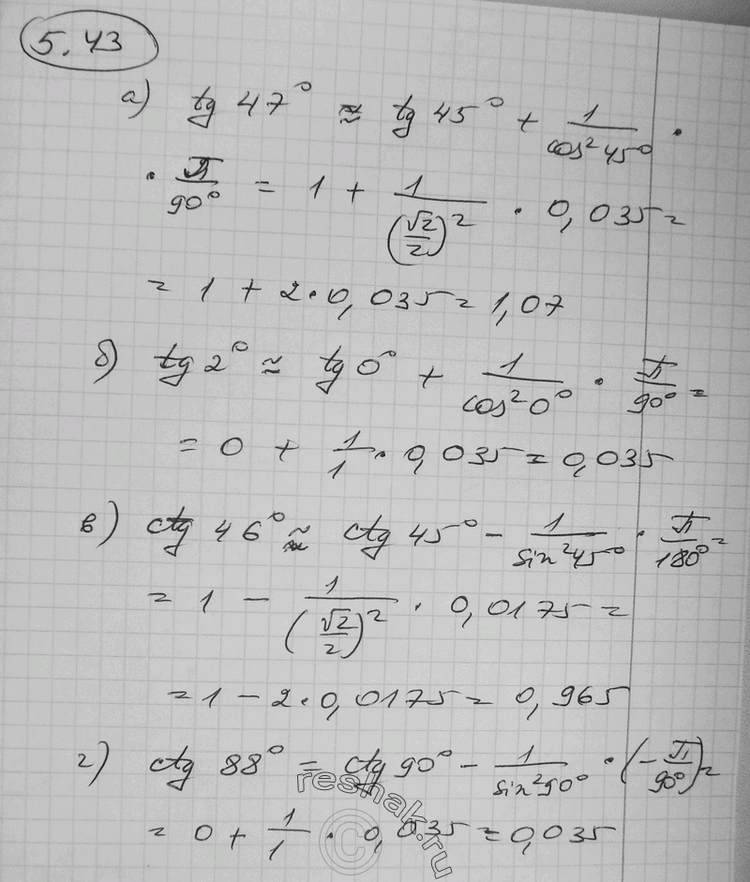 5.43
а) tg 47° ≈ tg 45° + 1/cos²45° ·
· π/90° = 1 + 1/(√2/2)² · 0,035 =
= 1 + 2·0,035 = 1,07
б) tg 2° ≈ tg 0° + 1/cos²0° · π/90° =
= 0 + 1/1 · 0,035 = 0,035
в) ctg 46° ≈ ctg 45° − 1/sin²45° · π/180° =
= 1 − 1/(√2/2)² · 0,0175 =
= 1 − 2·0,0175 = 0,965
г) ctg 88° = ctg 90° − 1/sin²90° · (−π/90°) =
= 0 + 1/1 · 0,035 = 0,035
©reshak.ru